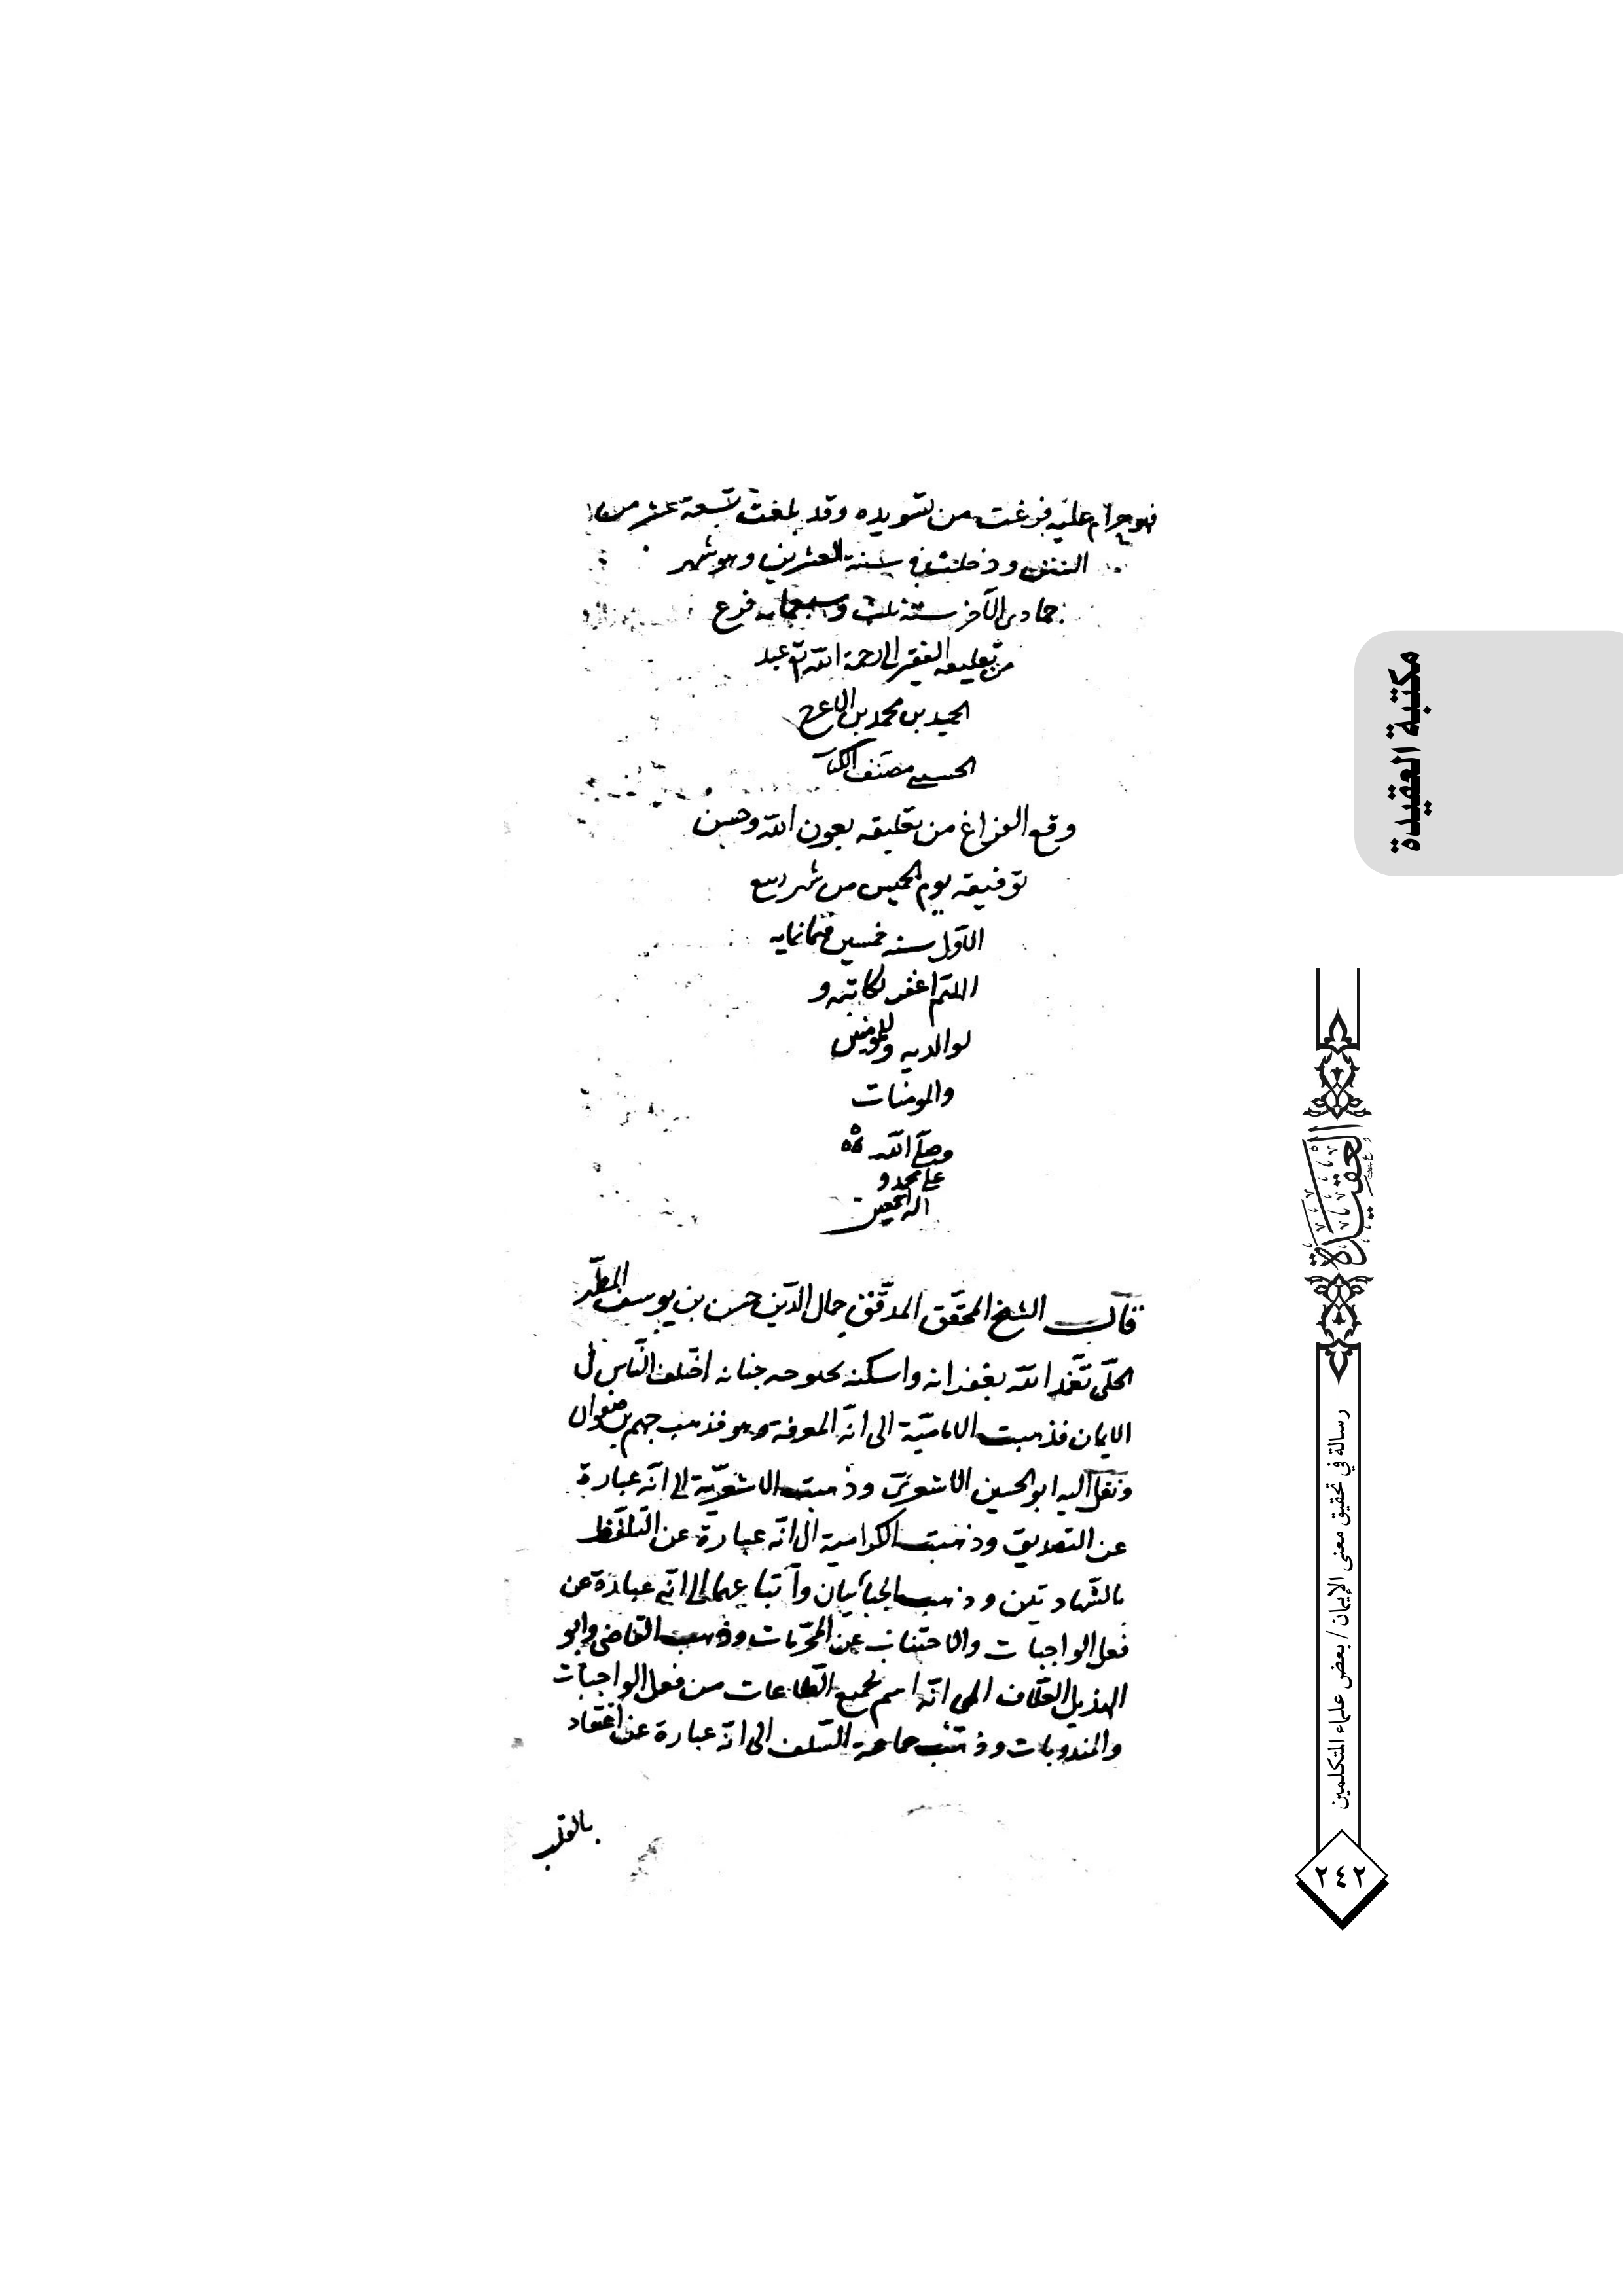 فهو حرام عليه فرغت من تسويده وقد بلغت تسعة عشر من
السنين ودخلت في سنة العشرين وهو شهر
جمادى الآخر سنة ثلث وسبعمايه فرغ
من تعليقه الفقير الى رحمة الله تع عبد
الحميد بن محمد بن الاعرج
الحسيني مصنف الكتاب
وقع الفراغ من تعليقه بعون الله وحسن
توفيقه يوم الخميس من شهر ربيع
الاول سنه خمسين وثمانمايه
اللهم اغفر لكاتبه و
لوالديه وللمومنين
والمومنات
وصلى الله
على محمد و
اله اجمعين
قال الشيخ المحقق المدقق جمال الدين حسن بن يوسف المطهر
الحلي تغمد الله بغفرانه واسكنه بحبوحه جنانه اختلف الناس في
الايمان فذهبت الامامية الى انه المعرفة وهو مذهب جهم بن صفوان
ونقل اليه ابو الحسين الاشعري وذهبت الاشعرية الى انه عبارة
عن التصديق وذهبت الكرامية الى انه عبارة عن التلفظ
بالشهادتين وذهب الجبائيان واتباعهما الى انه عبارة عن
فعل الواجبات والاجتناب عن المحرمات وذهب القاضي وابو
الهذيل العلاف الى انه اسم لجميع الطاعات من فعل الواجبات
والمندوبات وذهبت جماعة السلف الى انه عبارة عن اعتقاد
بالقلب
مكتبة العقيدة
العقيدة
رسالة في تحقيق معنى الإيمان / بعض علماء المتكلمين
٢٤٢